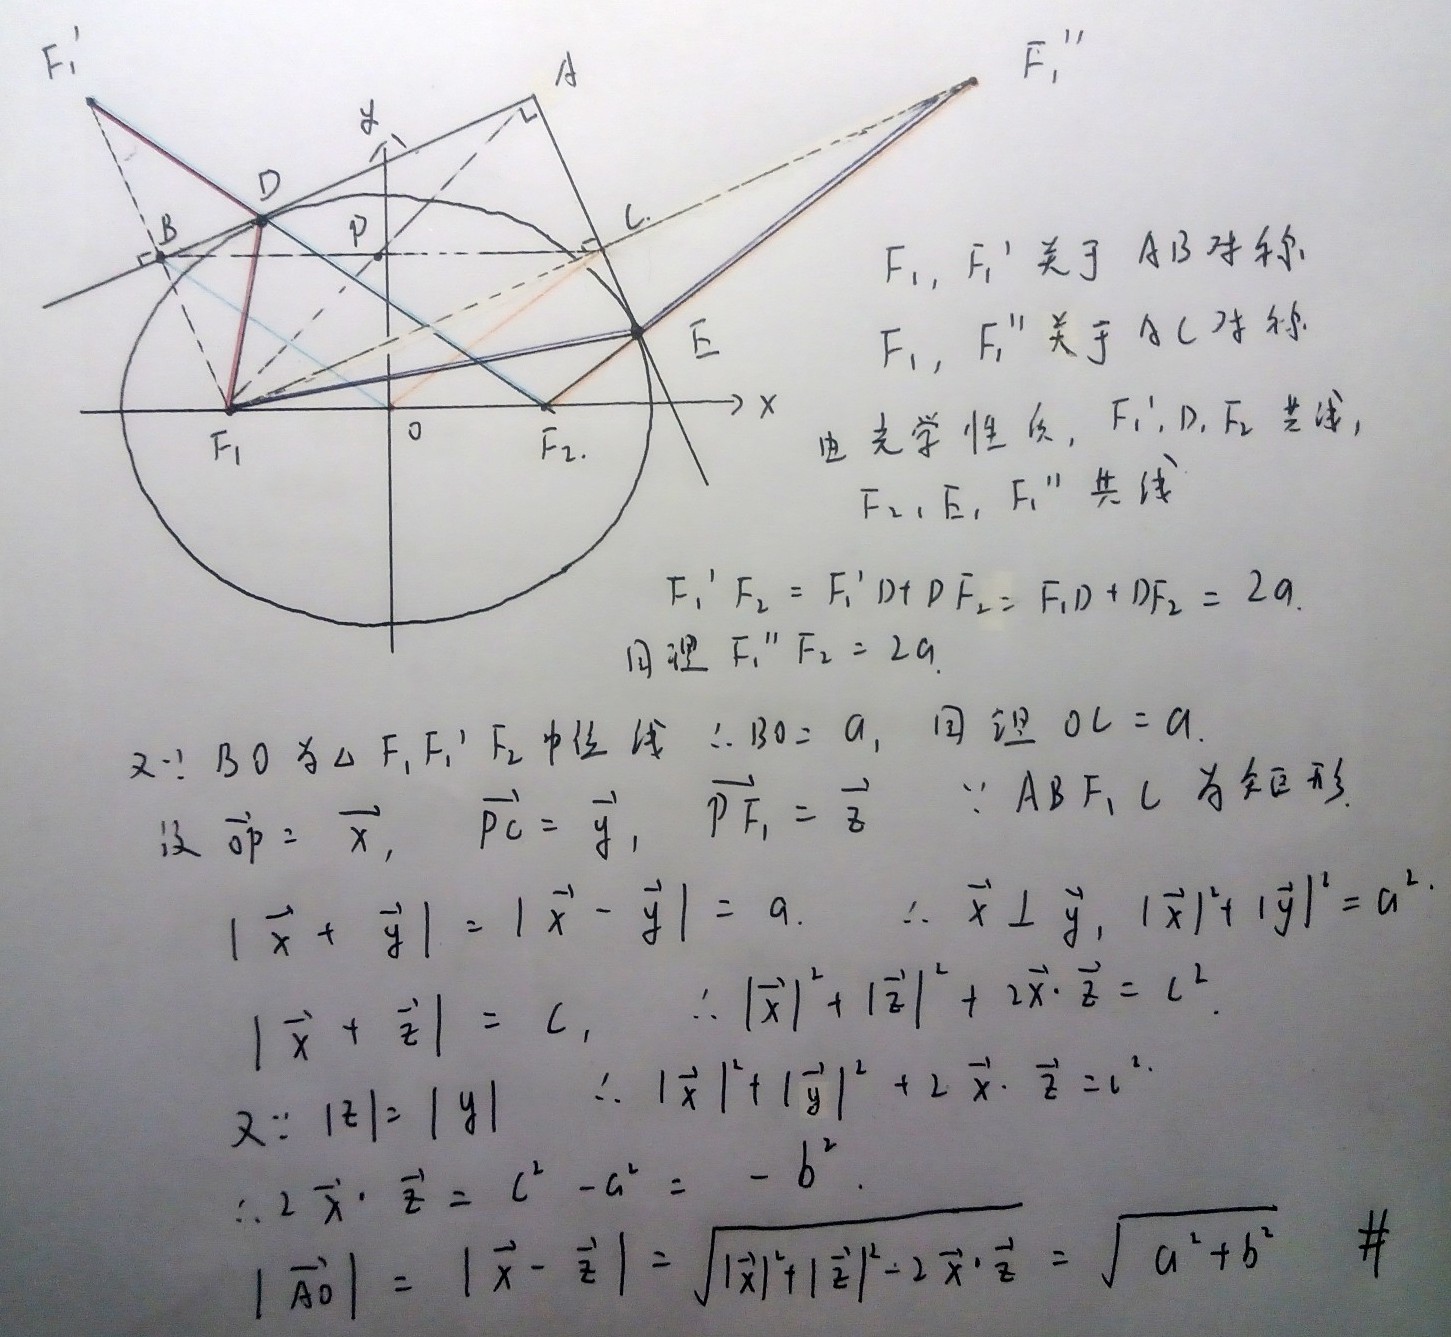 F₁'
A
F₁''
y
D
B
P
C.
E
x
F₁
O
F₂.
F₁, F₁' 关于 AB 对称
F₁, F₁'' 关于 AC 对称
由光学性质, F₁', D, F₂ 共线,
F₂, E, F₁'' 共线
F₁'F₂ = F₁'D + DF₂ = F₁D + DF₂ = 2a.
同理 F₁''F₂ = 2a.
又∵ BO 为△ F₁F₁'F₂ 中位线 ∴ BO = a, 同理 OC = a.
设 \vec{OP} = \vec{x}, \vec{PC} = \vec{y}, \vec{PF₁} = \vec{z} ∵ ABF₁C 为矩形.
|\vec{x} + \vec{y}| = |\vec{x} - \vec{y}| = a. ∴ \vec{x} ⊥ \vec{y}, |\vec{x}|² + |\vec{y}|² = a².
|\vec{x} + \vec{z}| = c, ∴ |\vec{x}|² + |\vec{z}|² + 2\vec{x}·\vec{z} = c².
又∵ |z| = |y| ∴ |\vec{x}|² + |\vec{y}|² + 2\vec{x}·\vec{z} = c².
∴ 2\vec{x}·\vec{z} = c² - a² = -b².
|\vec{AO}| = |\vec{x} - \vec{z}| = √(|\vec{x}|² + |\vec{z}|² - 2\vec{x}·\vec{z}) = √(a² + b²) #